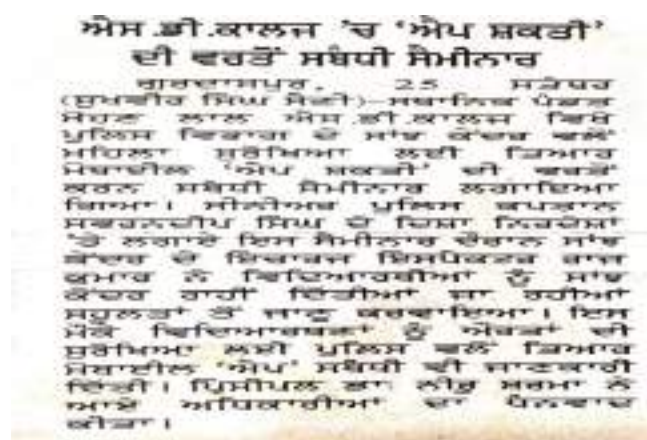 ਐਸ.ਡੀ.ਕਾਲਜ 'ਚ 'ਐਪ ਸ਼ਕਤੀ'
ਦੀ ਵਰਤੋਂ ਸਬੰਧੀ ਸੈਮੀਨਾਰ
ਗੁਰਦਾਸਪੁਰ, 25 ਸਤੰਬਰ
(ਸੁਖਵੀਰ ਸਿੰਘ ਸੈਣੀ)-ਸਥਾਨਿਕ ਪੰਡਤ
ਮੋਹਣ ਲਾਲ ਐਸ.ਡੀ.ਕਾਲਜ ਵਿਖੇ
ਪੁਲਿਸ ਵਿਭਾਗ ਦੇ ਸਾਂਝ ਕੇਂਦਰ ਵਲੋਂ
ਮਹਿਲਾ ਸੁਰੱਖਿਆ ਲਈ ਤਿਆਰ
ਮੋਬਾਈਲ 'ਐਪ ਸ਼ਕਤੀ' ਦੀ ਵਰਤੋਂ
ਕਰਨ ਸਬੰਧੀ ਸੈਮੀਨਾਰ ਲਗਾਇਆ
ਗਿਆ। ਸੀਨੀਅਰ ਪੁਲਿਸ ਕਪਤਾਨ
ਸਵਰਨਦੀਪ ਸਿੰਘ ਦੇ ਦਿਸ਼ਾ ਨਿਰਦੇਸ਼ਾਂ
'ਤੇ ਲਗਾਏ ਇਸ ਸੈਮੀਨਾਰ ਦੌਰਾਨ ਸਾਂਝ
ਕੇਂਦਰ ਦੇ ਇੰਚਾਰਜ ਇੰਸਪੈਕਟਰ ਰਾਜ
ਕੁਮਾਰ ਨੇ ਵਿਦਿਆਰਥੀਆਂ ਨੂੰ ਸਾਂਝ
ਕੇਂਦਰ ਰਾਹੀਂ ਦਿੱਤੀਆਂ ਜਾ ਰਹੀਆਂ
ਸਹੂਲਤਾਂ ਤੋਂ ਜਾਣੂ ਕਰਵਾਇਆ। ਇਸ
ਮੌਕੇ ਵਿਦਿਆਰਥਣਾਂ ਨੂੰ ਔਰਤਾਂ ਦੀ
ਸੁਰੱਖਿਆ ਲਈ ਪੁਲਿਸ ਵਲੋਂ ਤਿਆਰ
ਮੋਬਾਈਲ 'ਐਪ' ਸਬੰਧੀ ਵੀ ਜਾਣਕਾਰੀ
ਦਿੱਤੀ। ਪ੍ਰਿੰਸੀਪਲ ਡਾ: ਨੀਰੂ ਸ਼ਰਮਾ ਨੇ
ਆਏ ਅਧਿਕਾਰੀਆਂ ਦਾ ਧੰਨਵਾਦ
ਕੀਤਾ।